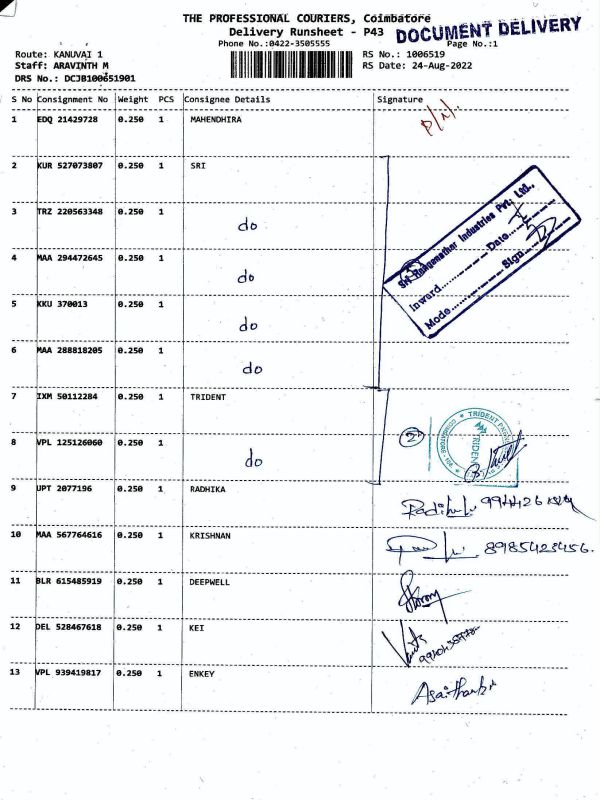 THE PROFESSIONAL COURIERS, Coimbatore
Delivery Runsheet - P43
DOCUMENT DELIVERY
Phone No.:0422-3505555
Page No.:1
Route: KANUVAI 1
RS No.: 1006519
Staff: ARAVINTH M
RS Date: 24-Aug-2022
DRS No.: DCJB100651901
S No Consignment No Weight PCS Consignee Details Signature
1 EDQ 21429728 0.250 1 MAHENDHIRA
2 KUR 527073807 0.250 1 SRI
3 TRZ 220563348 0.250 1 do
4 MAA 294472645 0.250 1 do
5 KKU 370013 0.250 1 do
6 MAA 288818205 0.250 1 do
Sri Ranganathar Industries Pvt. Ltd.,
Inward.......... Date..........
Mode.......... Sign..........
7 IXM 50112284 0.250 1 TRIDENT
8 VPL 125126060 0.250 1 do
2
TRIDENT
9 UPT 2077196 0.250 1 RADHIKA
10 MAA 567764616 0.250 1 KRISHNAN 8985423456.
11 BLR 615485919 0.250 1 DEEPWELL
12 DEL 528467618 0.250 1 KEI
13 VPL 939419817 0.250 1 ENKEY